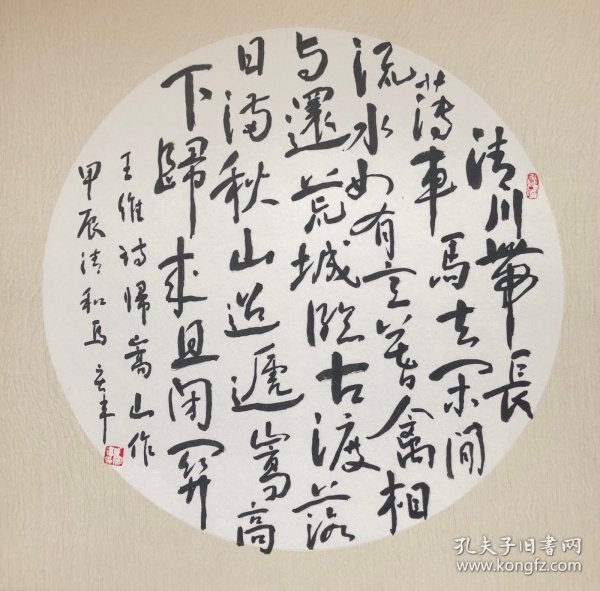 清川帶長
薄車馬去闲闲
流水如有意暮禽相
与還荒城臨古渡落
日满秋山迢遞嵩高
下歸来且闭関
王维诗归嵩山作
甲辰清和月
孔夫子旧书网
www.kongfz.com